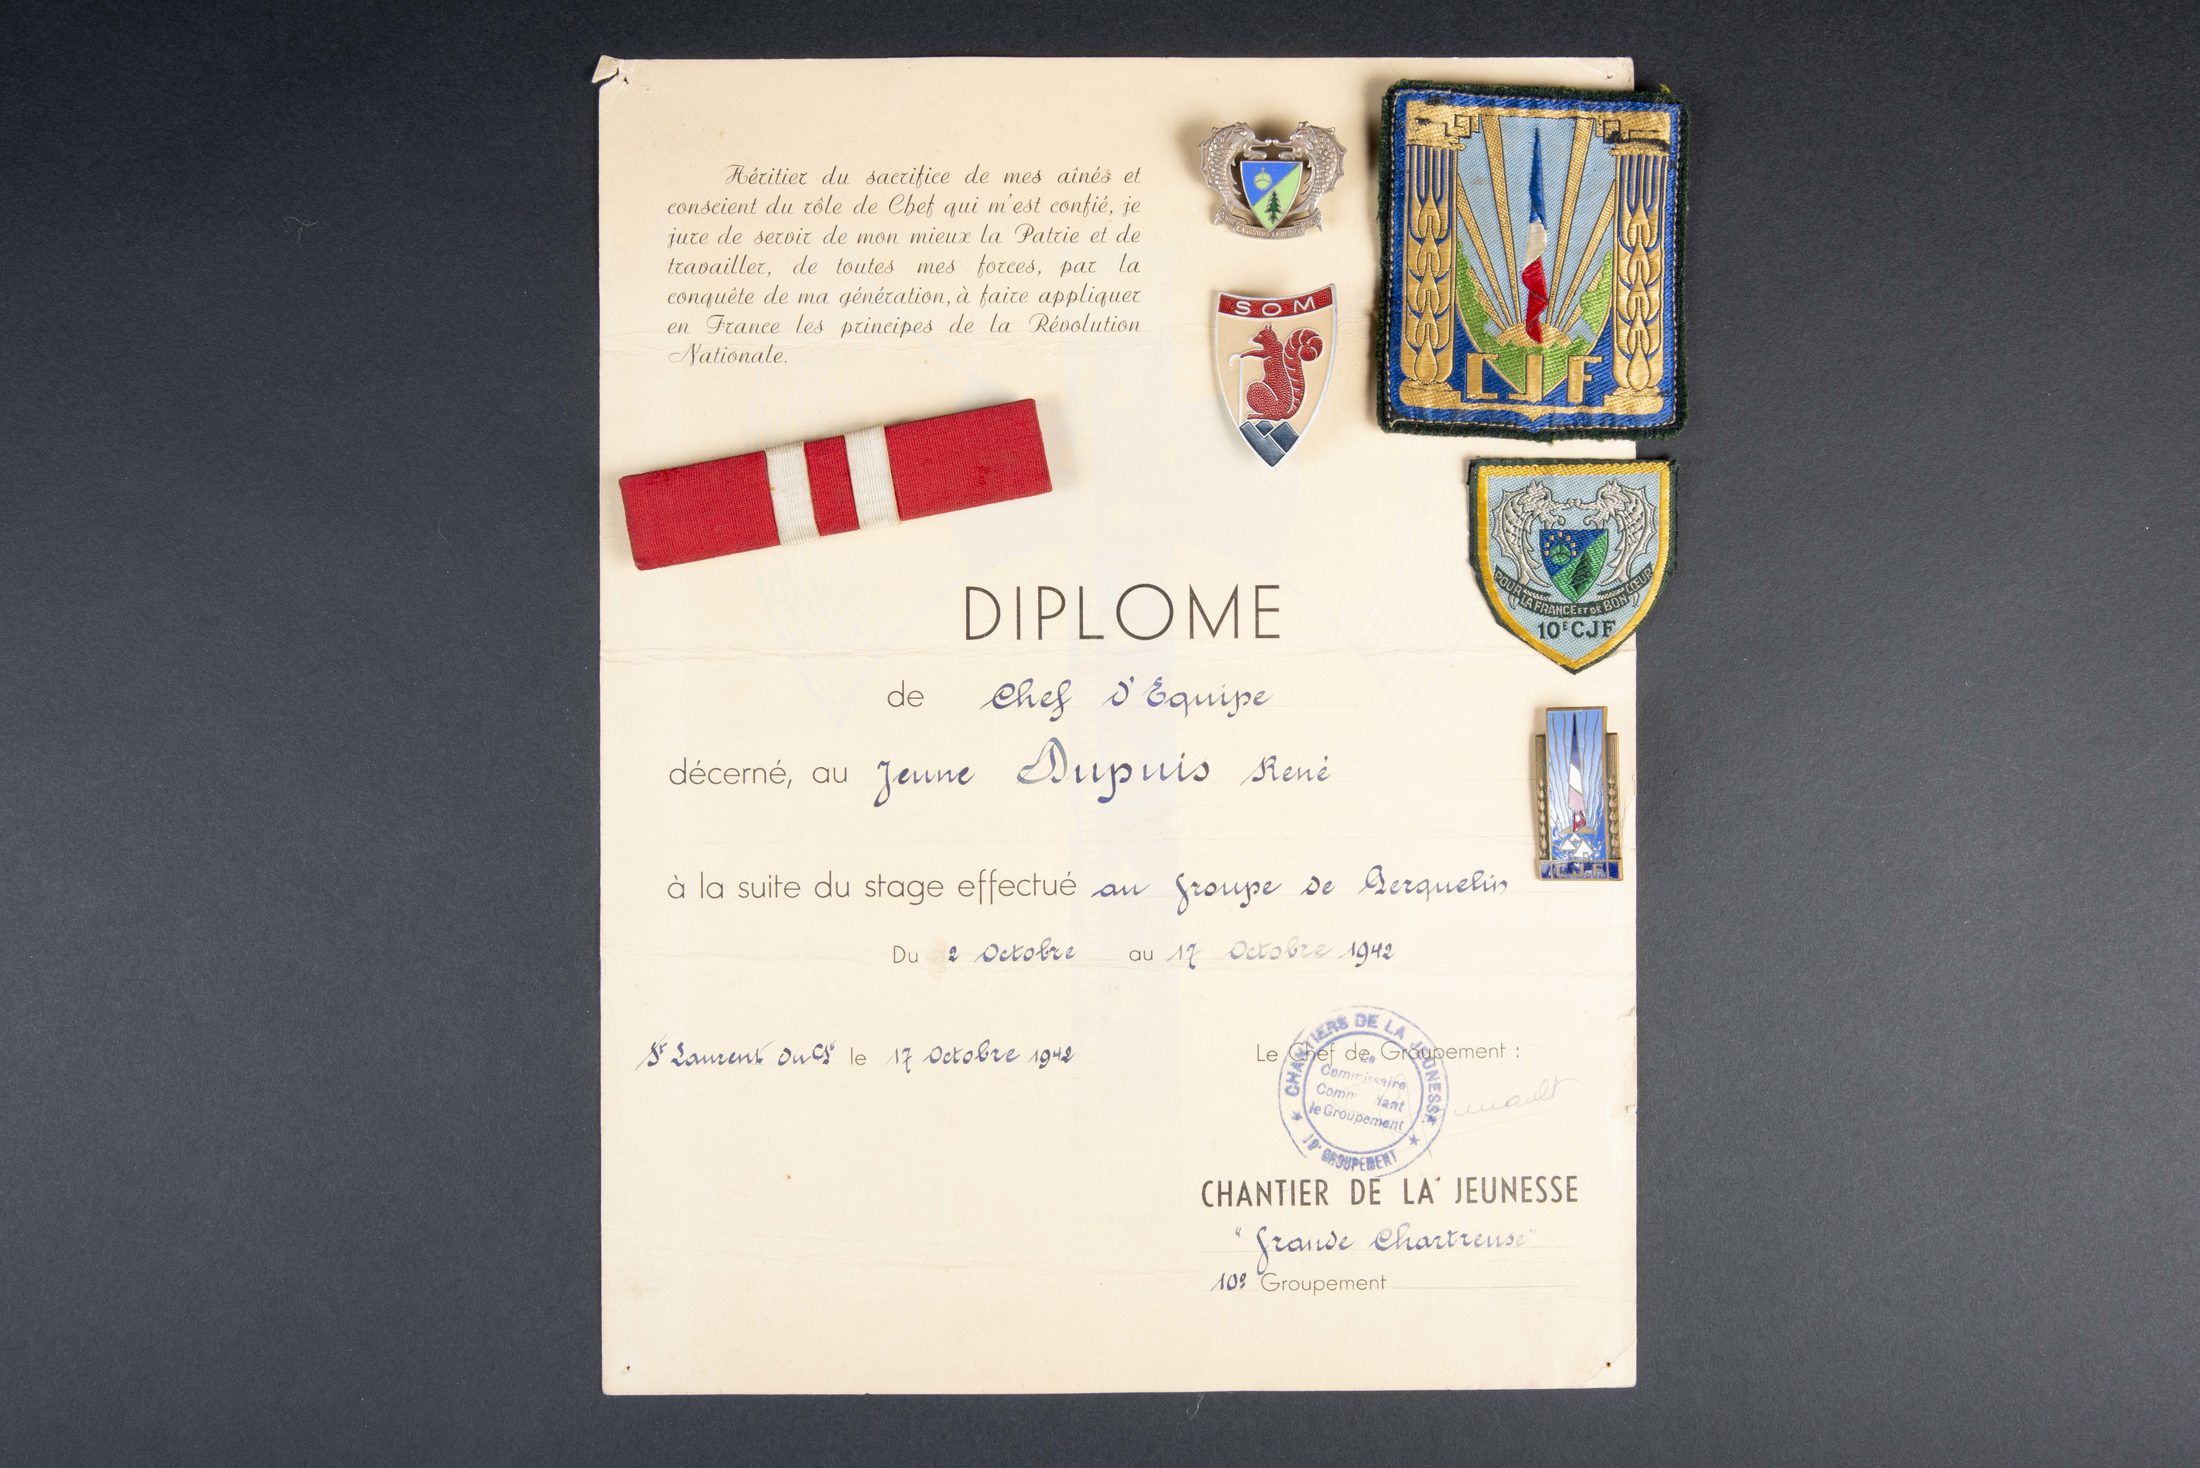 Héritier du sacrifice de mes aînés et
conscient du rôle de Chef qui m'est confié, je
jure de servir de mon mieux la Patrie et de
travailler, de toutes mes forces, par la
conquête de ma génération, à faire appliquer
en France les principes de la Révolution
Nationale.
SOM
CJF
POUR LA FRANCE ET DE BON CŒUR
10E CJF
C.J.F.
DIPLOME
de Chef d'Equipe
décerné, au Jeune Dupuis René
à la suite du stage effectué au Groupe de Berquelin
Du 2 Octobre au 17 Octobre 1942
St Laurent du Ct le 17 Octobre 1942
Le Chef de Groupement :
CHANTIERS DE LA JEUNESSE
Le
Commissaire
le Groupement
GROUPEMENT
CHANTIER DE LA JEUNESSE
"Grande Chartreuse"
10e Groupement